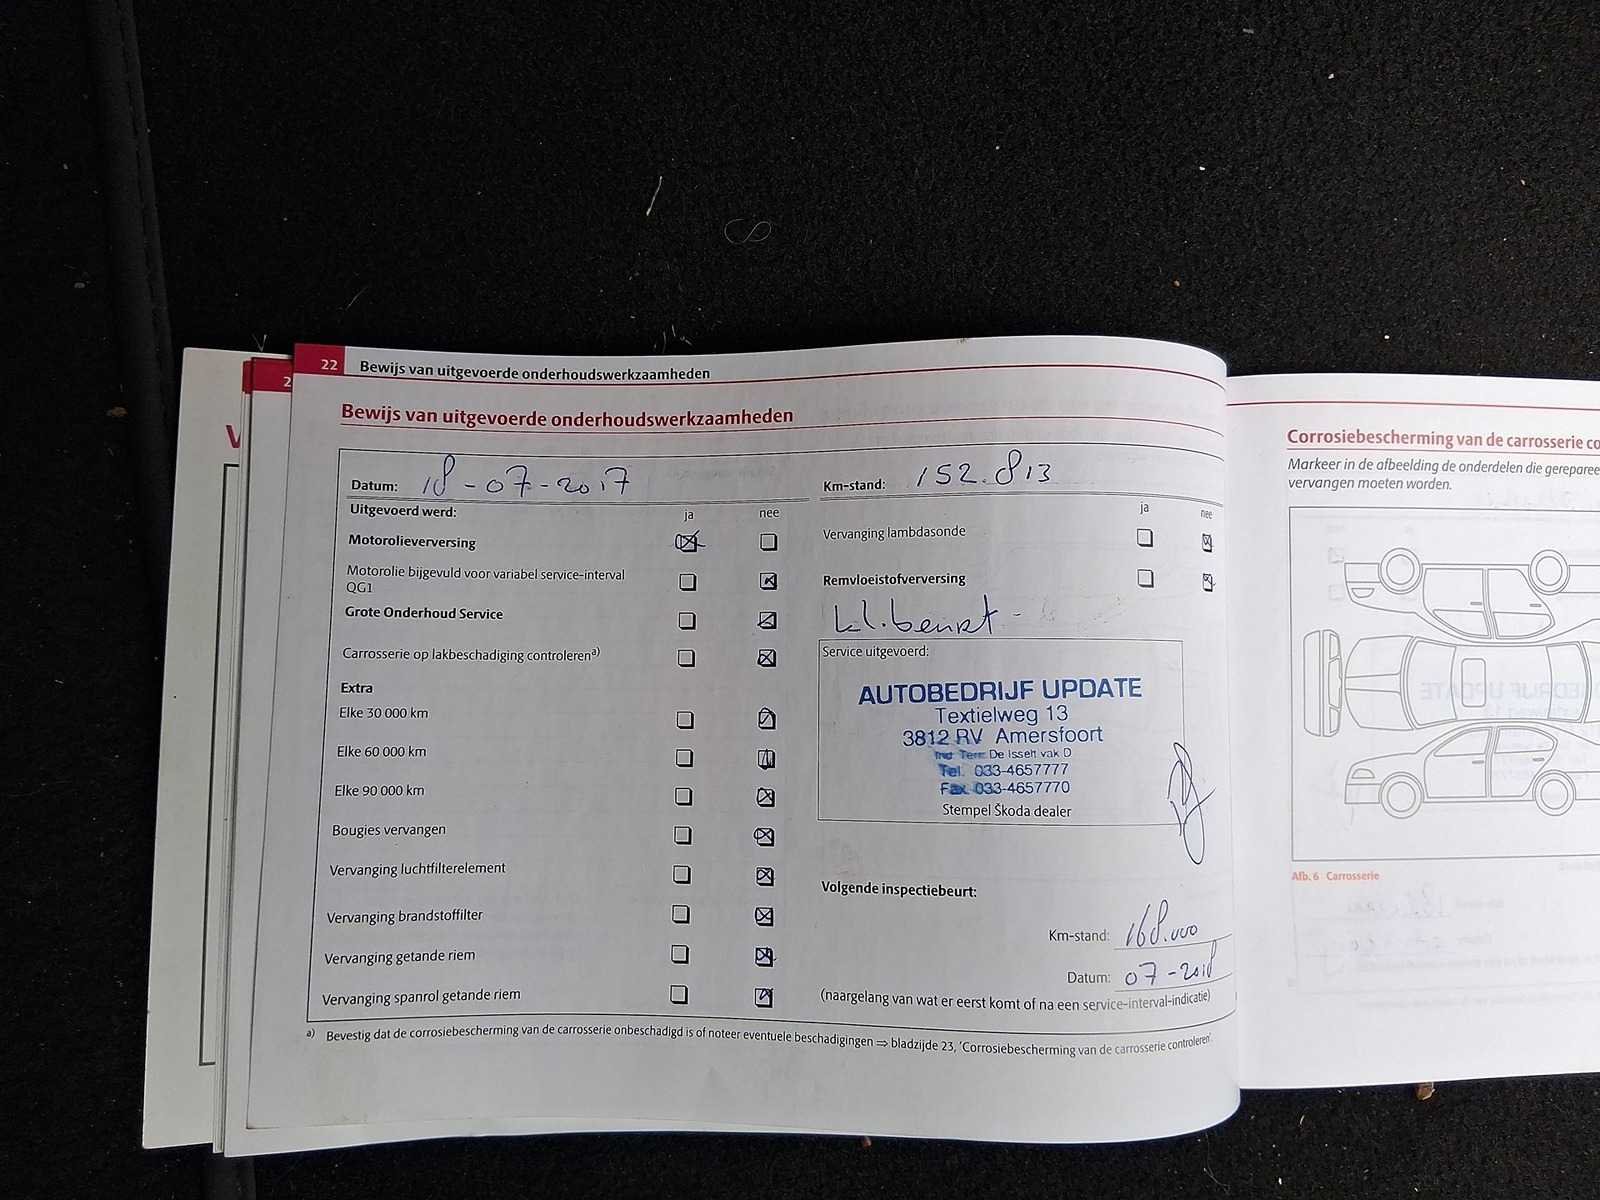 22 Bewijs van uitgevoerde onderhoudswerkzaamheden
Bewijs van uitgevoerde onderhoudswerkzaamheden
Datum: 18-07-2017
Uitgevoerd werd: ja nee
Motorolieverversing
Motorolie bijgevuld voor variabel service-interval
QG1
Grote Onderhoud Service
Carrosserie op lakbeschadiging controleren a)
Extra
Elke 30 000 km
Elke 60 000 km
Elke 90 000 km
Bougies vervangen
Vervanging luchtfilterelement
Vervanging brandstoffilter
Vervanging getande riem
Vervanging spanrol getande riem
Km-stand: 152.813
ja nee
Vervanging lambdasonde
Remvloeistofverversing
kl.beurt -
Service uitgevoerd:
AUTOBEDRIJF UPDATE
Textielweg 13
3812 RV Amersfoort
Ind Terr. De Isselt vak D
Tel. 033-4657777
Fax 033-4657770
Stempel Škoda dealer
Volgende inspectiebeurt:
Km-stand: 168.000
Datum: 07-2018
(naargelang van wat er eerst komt of na een service-interval-indicatie)
a) Bevestig dat de corrosiebescherming van de carrosserie onbeschadigd is of noteer eventuele beschadigingen ⇒ bladzijde 23, 'Corrosiebescherming van de carrosserie controleren'.
Corrosiebescherming van de carrosserie co
Markeer in de afbeelding de onderdelen die gereparee
vervangen moeten worden.
Afb. 6 Carrosserie
2
V